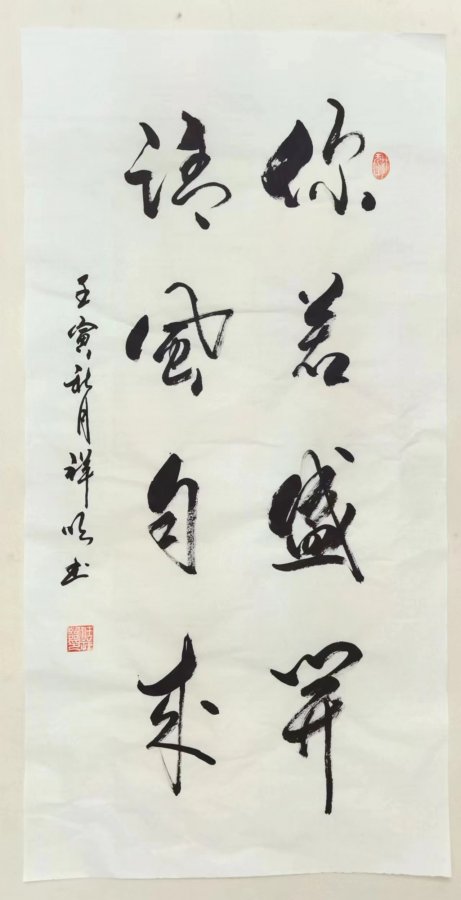 你若盛開
清風自来
壬寅秋月祥明书